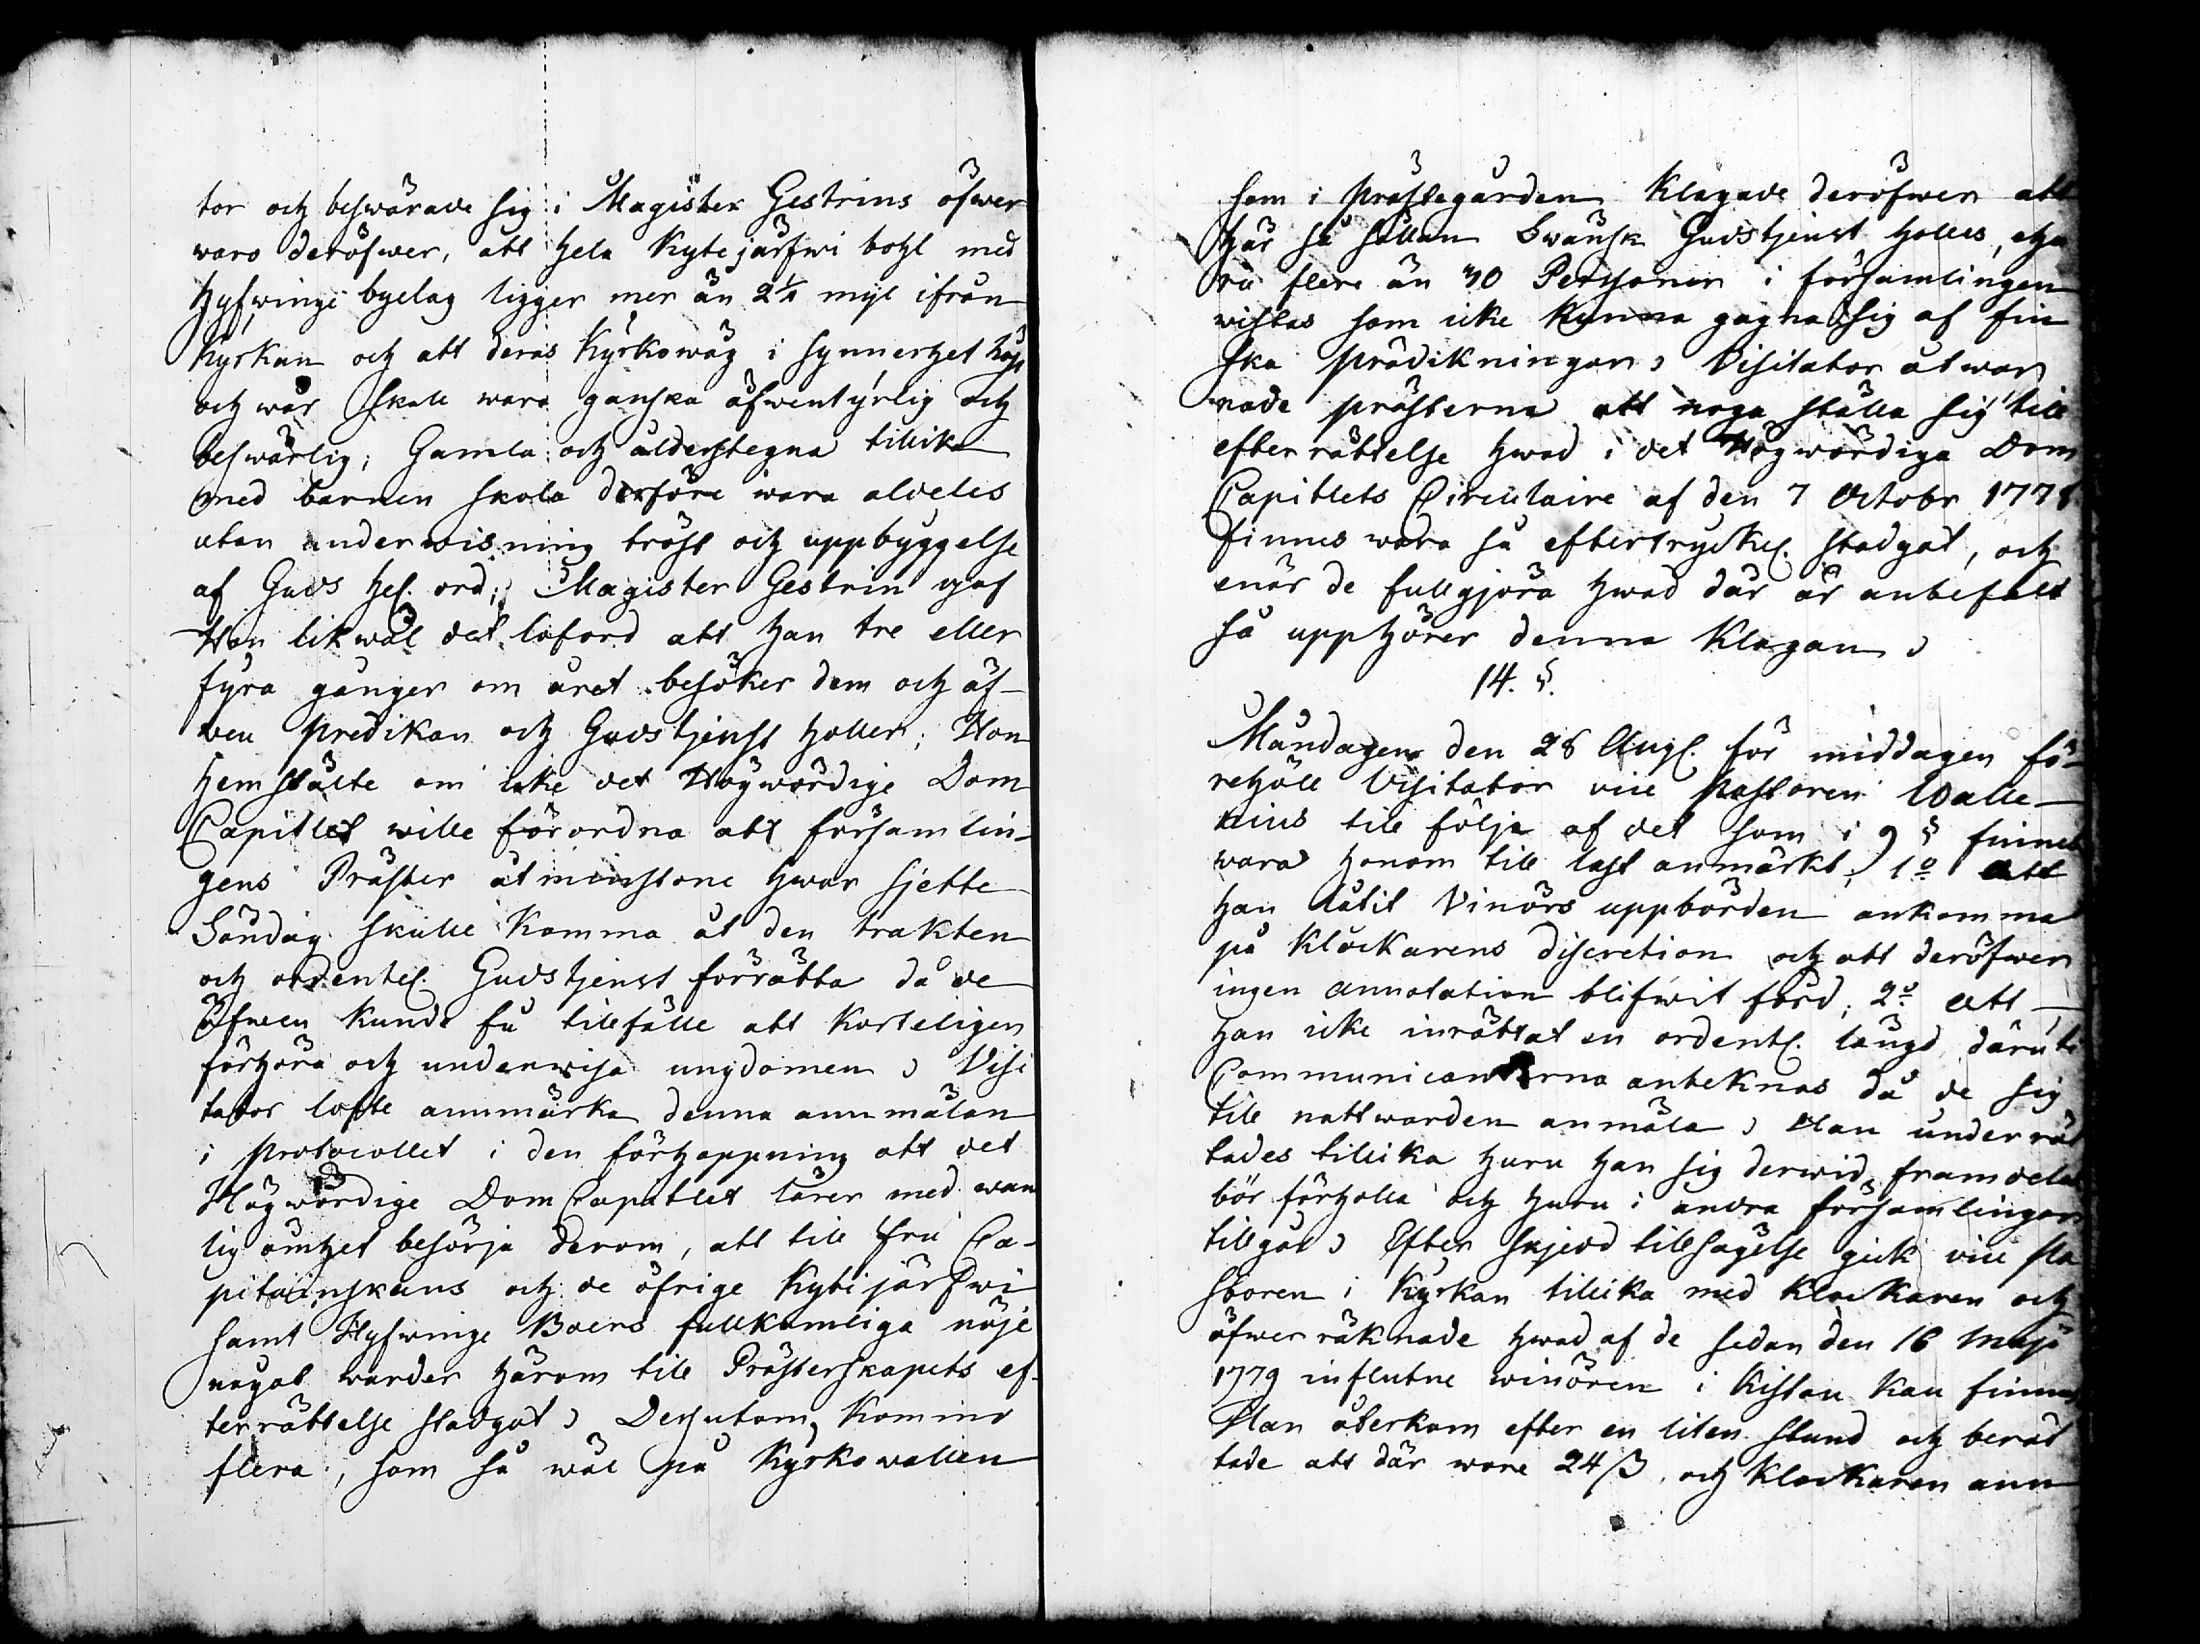 tor och beswärade sig i Magister Gestrins öfwer
waro deröfwer, att hela Kytejärfwi bohl med
Hyfwinge byelag ligger mer än 2¼ myl ifrån
Kyrkan och att deras Kyrkowäg i synnerhet höst
och wår skall wara ganska äfwentyrlig och
beswärlig; Gamla och ålderstegna tillika
med barnen skola derföre wara aldeles
utan underwisning tröst och uppbyggelse
af Guds hel. ord; Magister Gestrin gaf
Hon likwäl det loford att han tre eller
fyra gånger om året besöker dem och äf-
wen predikan och Gudstjenst håller; Hon
hemstälte om icke det Högwördige Dom
Capitlet wille förordna att församlin-
gens Präster åtminstone hwar sjette
Söndag skulle komma åt den trakten
och ordentel. Gudstjenst förrätta då de
äfwen kunde få tillfälle att korteligen
förhöra och underwisa ungdomen) Visi
tator lofte annmärka denna annmälan
i protocollet i den förhoppning att det
Högwördige Dom Capitlet lärer med wan
lig ömhet besörja derom, att till fru Ca-
pitainskans och de öfrige Kytejärfwi
samt Hyfwinge Boers fullkomliga nöje
något warder härom till Prästerskapets ef-
terrättelse stadgat) Dessutom kommo
flera, som så wäl på Kyrkowallen
som i prästegården klagade deröfwer att
här så sällan Swänsk Gudstjenst hålles, eho
ru flere än 30 Personer i församlingen
wistas som icke kunna gagna sig af fin
ska prädikningar) Visitator åtwar
nade prästerna att noga ställa sig till
efterrättelse hwad i det Högwördiga Dom
Capitlets Circulaire af den 7 Octobr 1778
finnes wara så eftertryckel. stadgat, och
enär de fullgjöra hwad där är anbefalt
så upphörer denna klagan)
14. §.
Måndagen den 28 Aug. för middagen fö-
rehöll Visitator vice pastoren Walle-
nius till följe af det som i 9 § finnes
wara honom till last anmärkt; 1o att
han låtit Vinörs uppbörden ankomma
på klockarens discretion och att deröfwer
ingen annotation blifwit förd; 2o att
han icke inrättat en ordentl. längd däruti
Communicanterna anteknas då de sig
till nattwarden anmäla) Han underrät
tades tillika huru han sig derwid framdeles
bör förhålla och huru i andra församlingar
tillgår) Efter skjedd tillsägelse gick vice pa
storen i Kyrkan tillika med klockaren och
öfwerräknade hwad af de sedan den 16 Maji
1779 influtne winören i kistan kan finnas
Han återkom efter en liten stund och berät
tade att där wore 24 ß, och klockaren ann